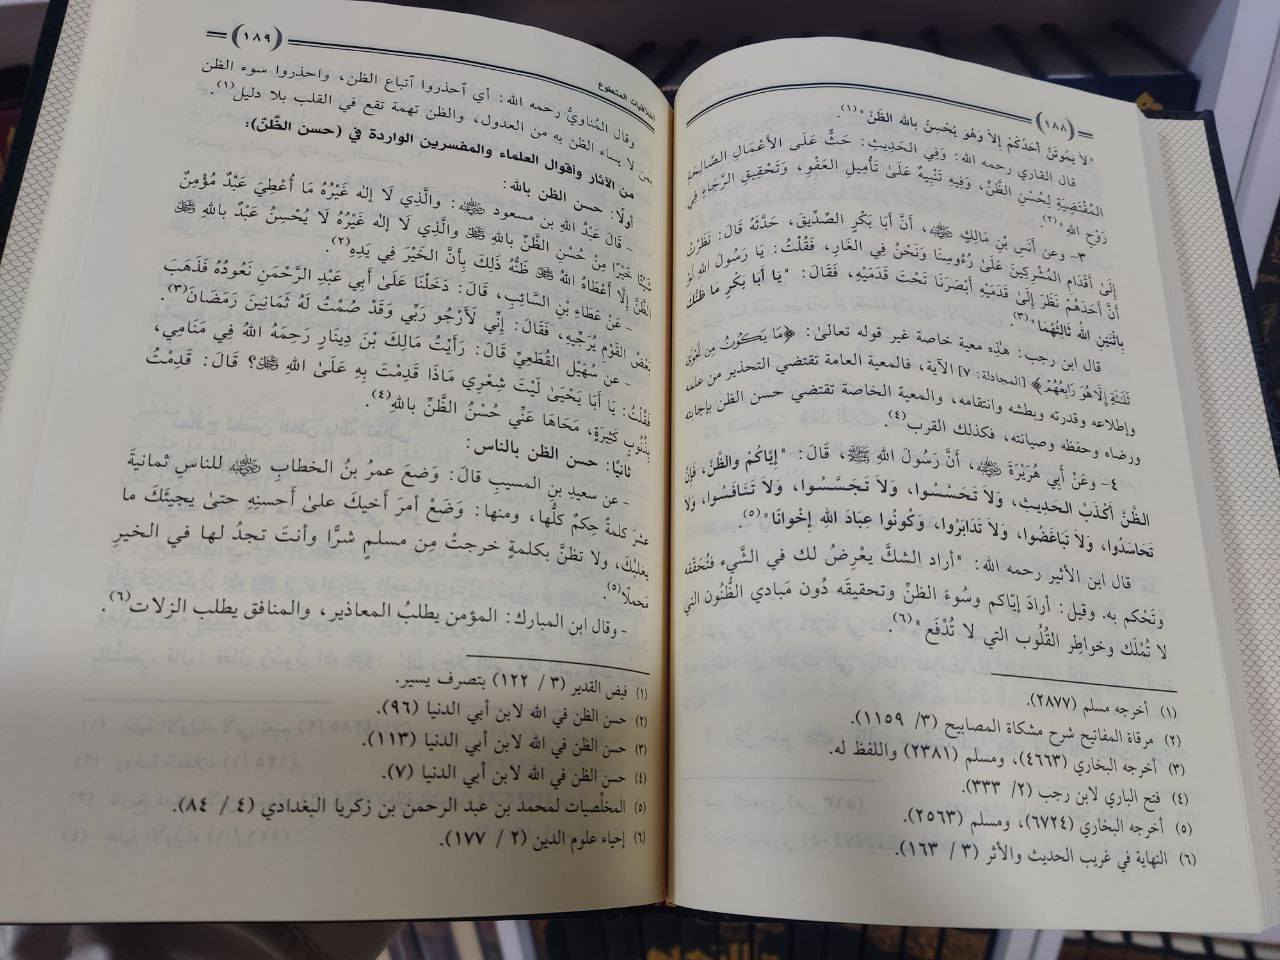 (١٨٨)
"لا يَمُوتَنَّ أَحَدُكُمْ إِلاَّ وَهُوَ يُحْسِنُ بِاللهِ الظَّنَّ"(١).
قال القاري رحمه الله: وَفِي الحَدِيثِ: حَثٌّ عَلَى الأَعْمَالِ الصَّالِحَةِ
المُقْتَضِيَةِ لِحُسْنِ الظَّنِّ، وَفِيهِ تَنْبِيهٌ عَلَىٰ تَأْمِيلِ العَفْوِ، وَتَحْقِيقِ الرَّجَاءِ فِي
رَوْحِ اللهِ"(٢).
٣- وعَن أَنَسِ بْنِ مَالِكٍ ﵁، أَنَّ أَبَا بَكْرٍ الصِّدِّيقَ، حَدَّثَهُ قَالَ: نَظَرْتُ
إِلَىٰ أَقْدَامِ المُشْرِكِينَ عَلَىٰ رُءُوسِنَا وَنَحْنُ فِي الغَارِ، فَقُلْتُ: يَا رَسُولَ اللهِ لَوْ
أَنَّ أَحَدَهُمْ نَظَرَ إِلَىٰ قَدَمَيْهِ أَبْصَرَنَا تَحْتَ قَدَمَيْهِ، فَقَالَ: "يَا أَبَا بَكْرٍ مَا ظَنُّكَ
بِاثْنَيْنِ اللهُ ثَالِثُهُمَا"(٣).
قال ابن رجب: هٰذه معية خاصة غير قوله تعالىٰ: ﴿مَا يَكُونُ مِن نَّجْوَىٰ
ثَلَٰثَةٍ إِلَّا هُوَ رَابِعُهُمْ﴾ [المجادلة: ٧] الآية، فالمعية العامة تقتضي التحذير من علمه
وإطلاعه وقدرته وبطشه وانتقامه، والمعية الخاصة تقتضي حسن الظن بإجابته
ورضاه وحفظه وصيانته، فكذلك القرب(٤).
٤- وعَنْ أَبِي هُرَيْرَةَ ﵁، أَنَّ رَسُولَ اللهِ ﷺ، قَالَ: "إِيَّاكُمْ وَالظَّنَّ، فَإِنَّ
الظَّنَّ أَكْذَبُ الحَدِيثِ، وَلاَ تَحَسَّسُوا، وَلاَ تَجَسَّسُوا، وَلاَ تَنَافَسُوا، وَلاَ
تَحَاسَدُوا، وَلاَ تَبَاغَضُوا، وَلاَ تَدَابَرُوا، وَكُونُوا عِبَادَ اللهِ إِخْوَانًا"(٥).
قال ابن الأثير رحمه الله: "أراد الشكَّ يعْرِضُ لك في الشَّيء فَتُحَقِّقه
وتَحْكم به. وقيل: أرادَ إيَّاكم وسُوءَ الظنِّ وتحقيقَه دُون مَبادي الظُّنُون التي
لا تُمْلَك وخواطِر القُلُوب التي لا تُدْفَع"(٦).
(١) أخرجه مسلم (٢٨٧٧).
(٢) مرقاة المفاتيح شرح مشكاة المصابيح (٣/ ١١٥٩).
(٣) أخرجه البخاري (٤٦٦٣)، ومسلم (٢٣٨١) واللفظ له.
(٤) فتح الباري لابن رجب (٢/ ٣٣٣).
(٥) أخرجه البخاري (٦٧٢٤)، ومسلم (٢٥٦٣).
(٦) النهاية في غريب الحديث والأثر (٣/ ١٦٣).
(١٨٩)
وقال المُناويُّ رحمه الله: أي احذروا اتباع الظن، واحذروا سوء الظن
بمن لا يساء الظن به من العدول، والظن تهمة تقع في القلب بلا دليل(١).
من الآثار وأقوال العلماء والمفسرين الواردة في (حسن الظَّنّ):
أولًا: حسن الظن بالله:
- قَالَ عَبْدُ اللهِ بن مسعود ﵁: والَّذِي لَا إِلٰهَ غَيْرُهُ مَا أُعْطِيَ عَبْدٌ مُؤْمِنٌ
شَيْئًا خَيْرًا مِنْ حُسْنِ الظَّنِّ بِاللهِ ﷻ وَالَّذِي لَا إِلٰهَ غَيْرُهُ لَا يُحْسِنُ عَبْدٌ بِاللهِ ﷻ
الظَّنَّ إِلَّا أَعْطَاهُ اللهُ ﷻ ظَنَّهُ ذَلِكَ بِأَنَّ الْخَيْرَ فِي يَدِهِ(٢)
- عَنْ عَطَاءِ بْنِ السَّائِبِ، قَالَ: دَخَلْنَا عَلَىٰ أَبِي عَبْدِ الرَّحْمَنِ نَعُودُهُ فَذَهَبَ
بَعْضُ القَوْمِ يُرَجِّيهِ، فَقَالَ: إِنِّي لَأَرْجُو رَبِّي وَقَدْ صُمْتُ لَهُ ثَمَانِينَ رَمَضَانَ(٣).
- عن سُهَيْلٍ القُطَعِيِّ قَالَ: رَأَيْتُ مَالِكَ بْنَ دِينَارٍ رَحِمَهُ اللهُ فِي مَنَامِي،
فَقُلْتُ: يَا أَبَا يَحْيَىٰ لَيْتَ شِعْرِي مَاذَا قَدِمْتَ بِهِ عَلَىٰ اللهِ ﷻ؟ قَالَ: قَدِمْتُ
بِذُنُوبٍ كَثِيرَةٍ، مَحَاهَا عَنِّي حُسْنُ الظَّنِّ باللهِ(٤).
ثانيًّا: حسن الظن بالناس:
- عن سعيدِ بنِ المسيبِ قالَ: وَضعَ عمرُ بنُ الخطابِ ﵁ للناسِ ثمانيةَ
عشرَ كلمةً حِكمٌ كلُّها، ومنها: وَضَعْ أمرَ أخيكَ علىٰ أحسنِهِ حتىٰ يجيئَكَ ما
يغلبُكَ، ولا تظنَّ بكلمةٍ خرجتْ مِن مسلمٍ شرًّا وأنتَ تجدُ لها في الخيرِ
تَحملًا(٥).
- وقال ابن المبارك: المؤمن يطلبُ المعاذير، والمنافق يطلب الزلات(٦).
(١) فيض القدير (٣/ ١٢٢) بتصرف يسير.
(٢) حسن الظن في الله لابن أبي الدنيا (٩٦).
(٣) حسن الظن في الله لابن أبي الدنيا (١١٣).
(٤) حسن الظن في الله لابن أبي الدنيا (٧).
(٥) المخلِّصيات لمحمد بن عبد الرحمن بن زكريا البغدادي (٤/ ٨٤).
(٦) إحياء علوم الدين (٢/ ١٧٧).